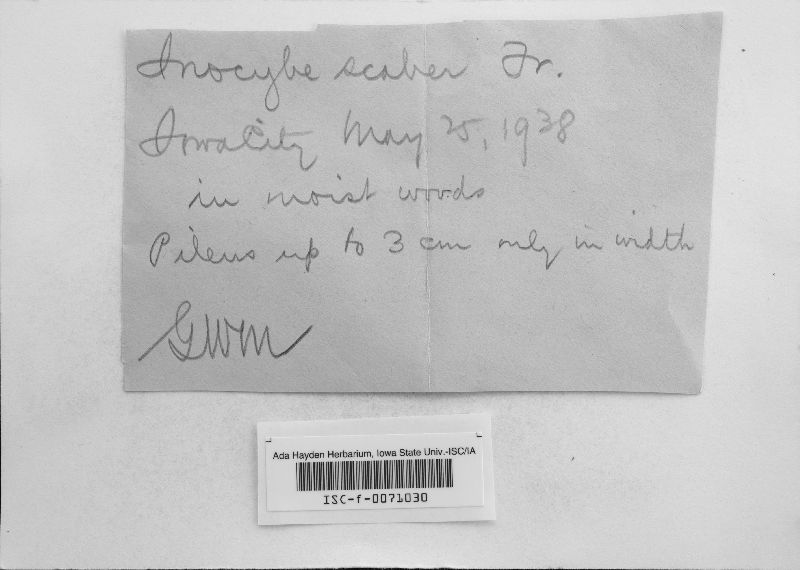 Inocybe scaber Fr.
Iowa City May 25, 1938
in moist woods
Pileus up to 3 cm only in width
GWM
Ada Hayden Herbarium, Iowa State Univ.-ISC/IA
ISC-f-0071030